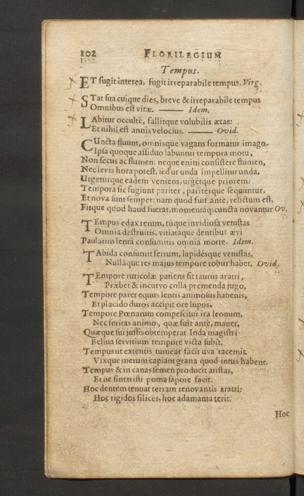 102 FLORILEGIUM
Tempus.
ET fugit interea, fugit irreparabile tempus. Virg.
STat sua cuique dies, breve & irreparabile tempus
Omnibus est vitæ. —— Idem.
LAbitur occultè, fallitque volubilis ætas:
Et nihil est annis velocius. —— Ovid.
CUncta fluunt, omnisque vagans formatur imago.
Ipsa quoque assiduo labuntur tempora motu,
Non secus ac flumen: neque enim consistere flumen,
Nec levis hora potest. sed ut unda impellitur unda,
Urgeturque eadem veniens, urgetque priorem:
Tempora sic fugiunt pariter, pariterque sequuntur.
Et nova sunt semper: nam quod fuit ante, relictum est.
Fitque quod haud fuerat, momentaq; cuncta novantur Ov.
TEmpus edax rerum, tuque invidiosa vetustas
Omnia destruitis, vitiataque dentibus ævi
Paulatim lenta consumitis omnia morte. Idem.
TAbida consumit ferrum, lapidesque vetustas,
Nulla que res majus tempore robur habet. Ovid.
TEmpore ruricolæ patiens fit taurus aratri,
Præbet & incurvo colla premenda jugo,
Tempore paret equus lentis animosus habenis,
Et placido duros accipit ore lupos,
Tempore Pœnorum compescitur ira leonum,
Nec feritas animo, quæ fuit ante, manet,
Quæque sui jussis obtemperat Inda magistri
Bellua servitium tempore victa subit.
Tempus ut extensis tumeat facit uva racemis.
Vixque merum capiant grana quod intus habent.
Tempus & in canas semen producit aristas,
Et ne sint tristi poma sapore facit.
Hoc dentem tenuat terram renovantis aratri:
Hoc rigidos silices, hoc adamanta terit.
Hoc